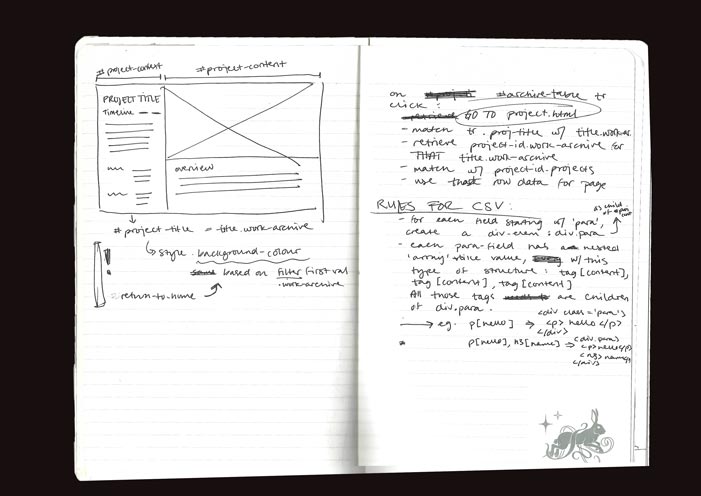 #project-context
#project-content
PROJECT TITLE
Timeline
overview
#project-title = title.work-archive
style. background-colour
based on filter (first val
.work-archive
= return-to-home
on #archive-table tr
click:
GO TO project.html
- match tr.proj-title w/ title.work-ar.
- retrieve project-id.work-archive for
THAT title.work-archive
- match w/ project-id.projects
- use row data for page
RULES FOR CSV:
as child
- for each field starting w/ 'para',
create a div-elem: div.para
- each para-field has a nested
'array'-like value, w/ this
type of structure: tag[content],
tag[content], tag[content]
All those tags are children
of div.para.
<div class='para'>
→ eg. p[hello] ⇒ <p>hello</p>
</div>
p[hello], h3[name] ⇒ <div.para>
<p>hello</p>
<h3>name</h3>
</div>